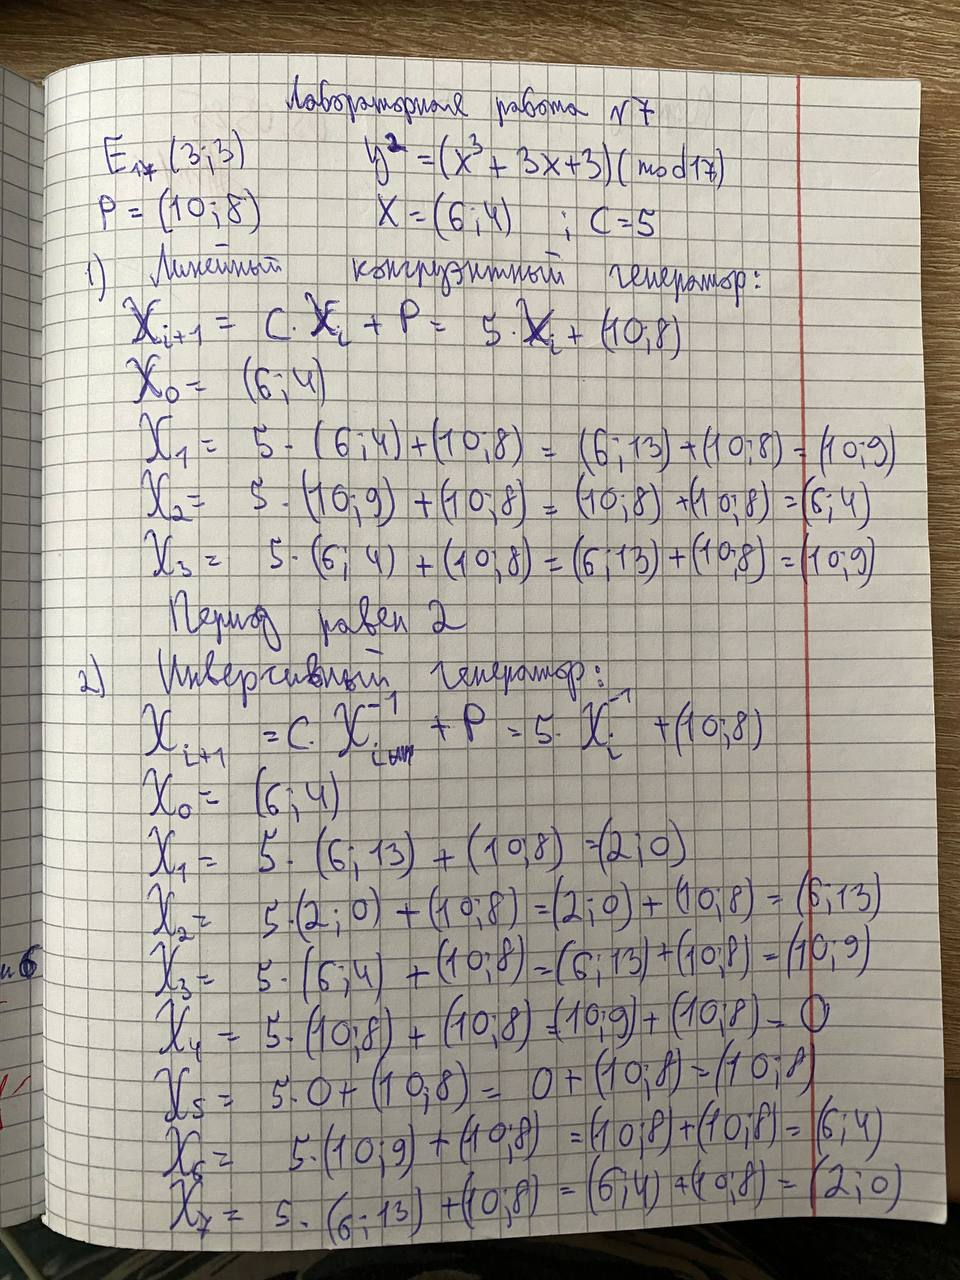 Лабораторная работа №7
E₁₇ (3;3) y² = (x³ + 3x+3)(mod17)
P = (10;8) X = (6;4) ; C=5
1) Линейный конгруэнтный генератор:
Xᵢ₊₁ = C·Xᵢ + P = 5·Xᵢ + (10;8)
X₀ = (6;4)
X₁ = 5·(6;4)+(10;8) = (6;13)+(10;8) = (10;9)
X₂ = 5·(10;9)+(10;8) = (10;8)+(10;8) = (6;4)
X₃ = 5·(6;4)+(10;8) = (6;13)+(10;8) = (10;9)
Период равен 2
2) Инверсивный генератор:
Xᵢ₊₁ = C·Xᵢ⁻¹ + P = 5·Xᵢ⁻¹ + (10;8)
X₀ = (6;4)
X₁ = 5·(6;13) + (10;8) = (2;0)
X₂ = 5·(2;0) + (10;8) = (2;0) + (10;8) = (6;13)
X₃ = 5·(6;4) + (10;8) = (6;13)+(10;8) = (10;9)
X₄ = 5·(10;8) + (10;8) = (10;9) + (10;8) = 0
X₅ = 5·0+(10;8) = 0+(10;8) = (10;8)
X₆ = 5·(10;9)+(10;8) = (10;8)+(10;8) = (6;4)
X₇ = 5·(6;13)+(10;8) = (6;4)+(10;8) = (2;0)